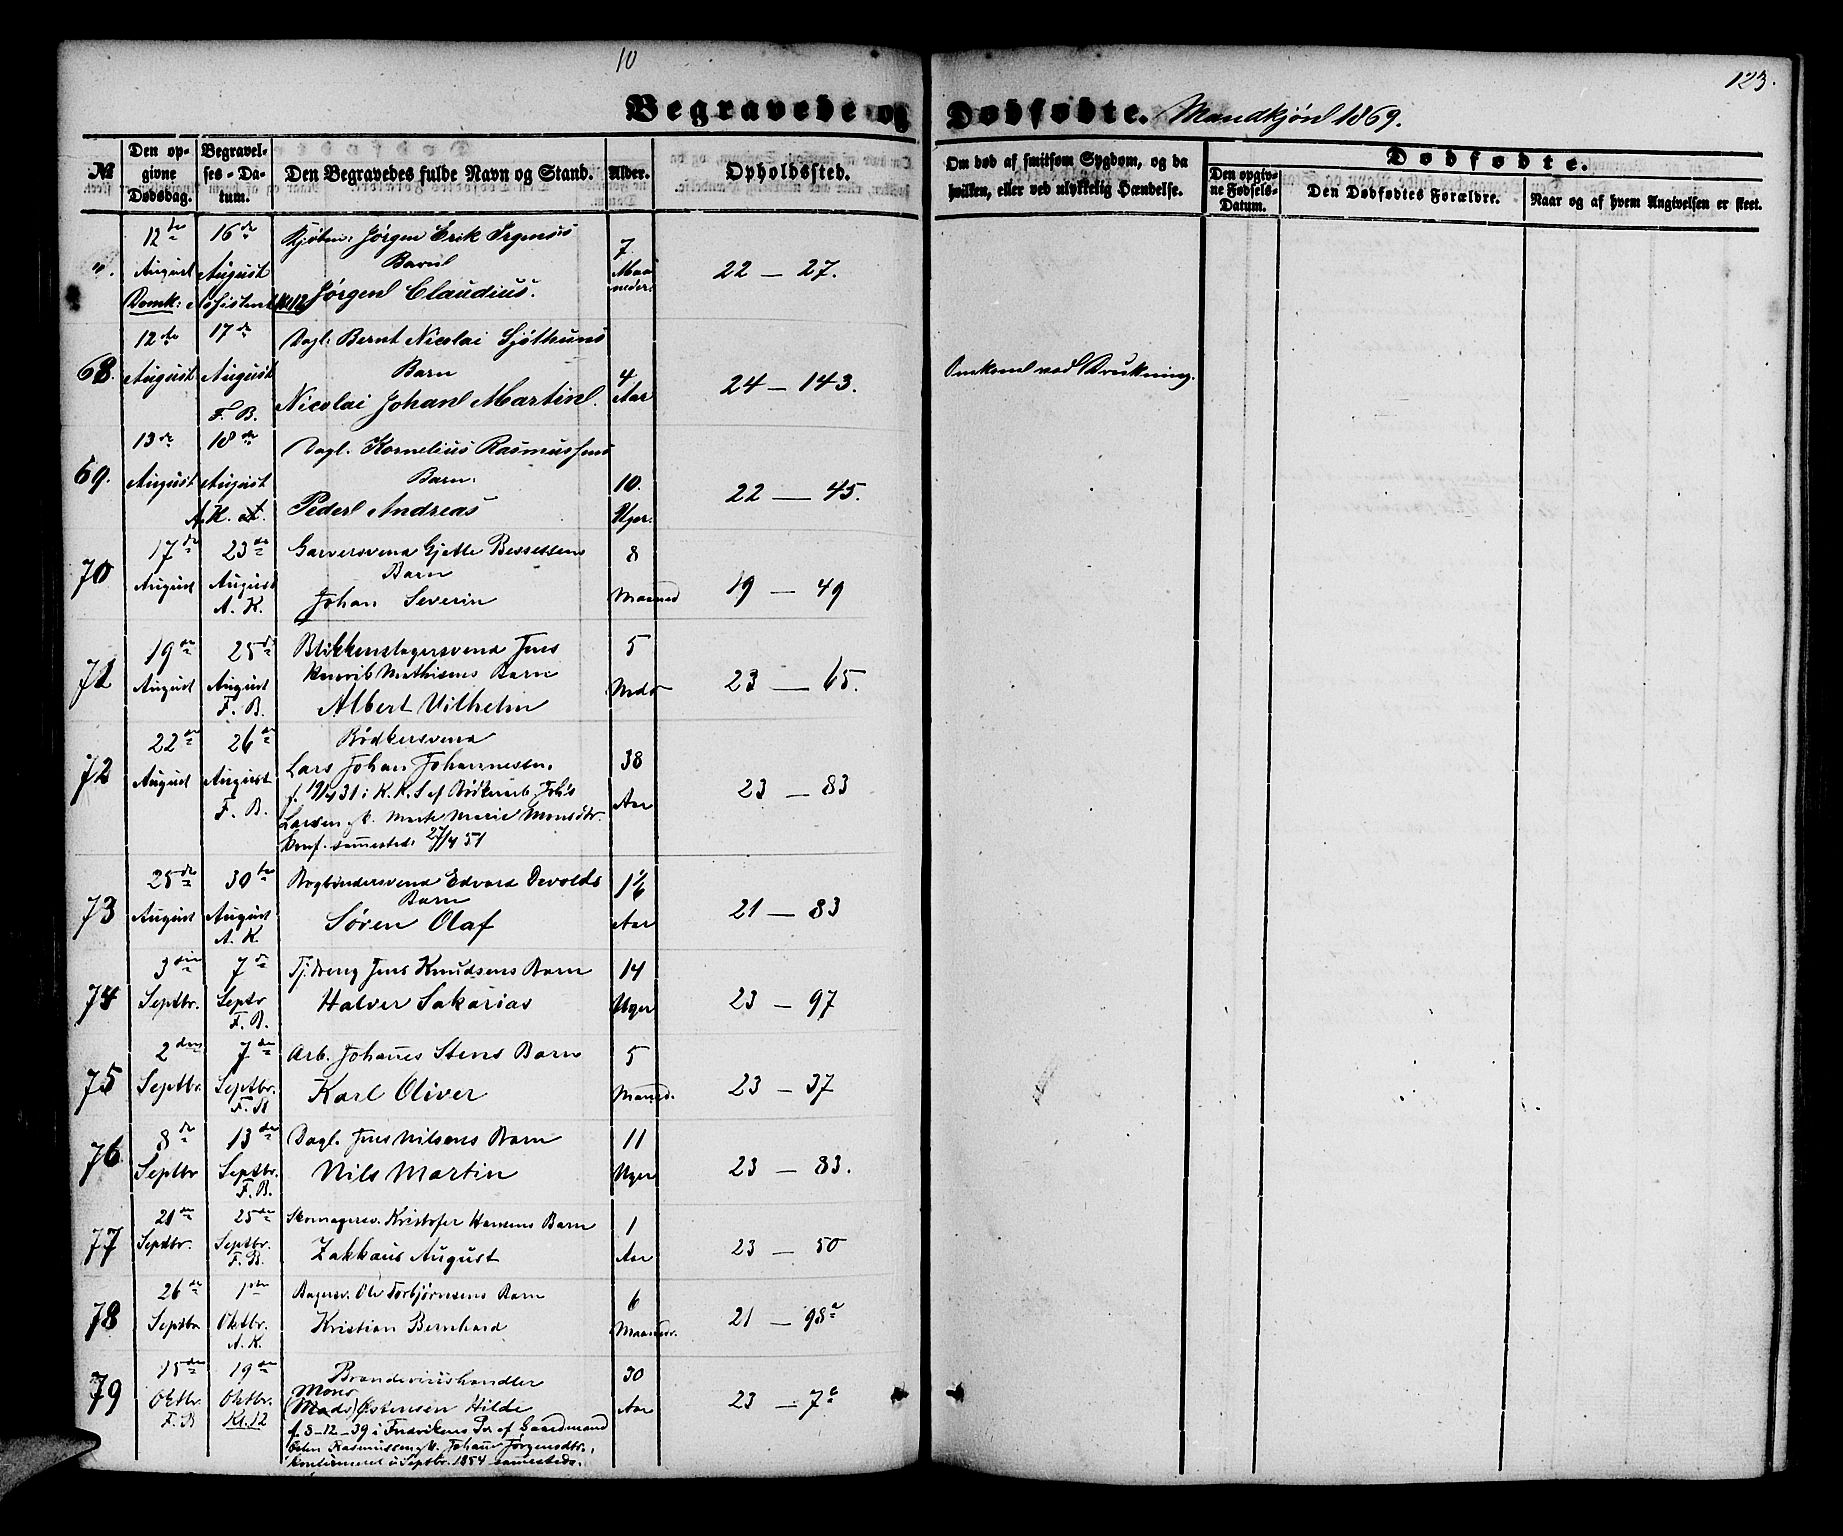 10
123.
Begravede og Dødfødte. Mandkjøn 1869.
№ Den opgivne Dødsdag. Begravelses-Datum. Den Begravedes fulde Navn og Stand. Alder. Opholdssted. Om død af smitsom Sygdom, og da hvilken, eller ved ulykkelig Hændelse. Dødfødte.
Den opgivne Fødsels-Datum. Den Dødfødtes Forældre. Naar og af hvem Angivelsen er skeet.
12te 16de Kjøbm: Jørgen Erik Irgens's 7
". August August Barn Maaneder. 22 — 27.
Domk: Assistent Kl 12 Jørgen Claudius.
12te 17de Dagl. Bernt Nicolai
68. August August Barn 4 Aar 24 — 143. Omkom ved Drukning.
F. B. Nicolai Johan Martin.
13de 18de Dagl. Kornelius Rasmussens
69. August August Barn. 10. 22 — 45.
A. K. Peder Andreas Uger.
17de 23de Garversvend Gjette Bessesens 8
70 August August Barn 19 — 49
A. K. Johan Severin Maaned
19de 25de Blikkenslagersvend Jens 5
71 August August Mathisens Barn Mdr 23 — 65.
F. B. Albert Vilhelm
22de 26de Bødkersvend
72 August August Lars Johan Johannessen. 38 Aar 23 — 83
F. B. f. 19/4 31 i K. K. S. af Bødkerarb. Johs
Larsen gk. Marie Monsdtr.
konf. sammesteds 27/4 51
25de 30te Bogbindersvend Edvard Devolds 1 1/6
73 August August Barn 21 — 83
A. K. Søren Olaf Aar
3die 7de Tj.dreng Jens Knudsens Barn 14
74 Septbr. Septbr Halver Sakarias Uger 23 — 97
F. B.
2den 7de Arb. Johanes Stens Barn 5
75 Septbr. Septbr. Karl Oliver Maaned. 23 — 37
F. B.
8de 13de Dagl. Jens Nilsens Barn 11
76 Septbr Septbr. Nils Martin Uger 23 — 83.
F. B.
21de 25de Skomagersv. Kristofer Hansens Barn 1
77 Septbr. Septbr. Zakkæus August Aar 23 — 50
F. B.
26de 1ste Bagersv. Ole Torbjørnsens Barn 6
78 Septbr Oktbr. Kristian Bernhard Maaneder. 21 — 98a
A. K.
15de 19de Brændevinshandler 30
79 Oktbr. Oktbr. Mons (Mads) Østensen Hilde Aar 23 — 7c
F. B Kl. 12 f. 8-12-39 i Fredrikens Pr. af Gaardmand
Østen Rasmussen gk. Johanne Jørgensdtr.,
konfirmeret i Septbr. 1854 sammesteds.